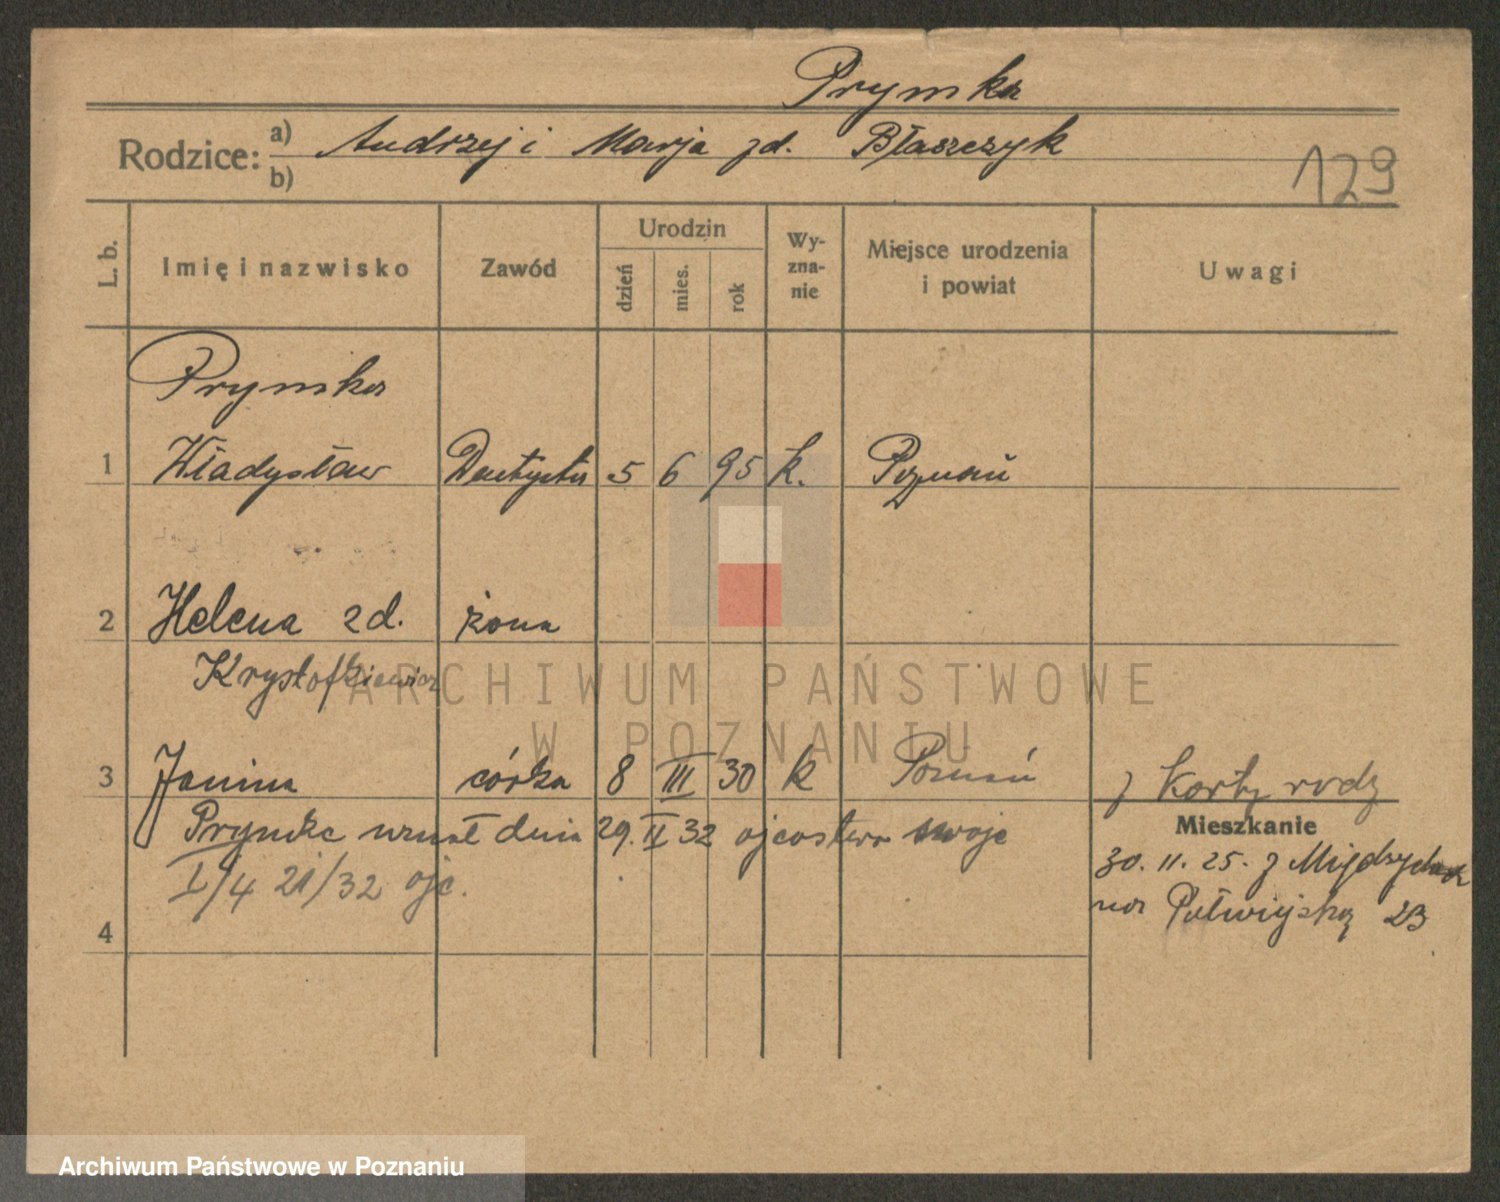 Prymka
Rodzice: a) Andrzej i Marja zd. Błaszczyk
b)
129
L. b.
Imię i nazwisko
Zawód
Urodzin
dzień
mies.
rok
Wy-
zna-
nie
Miejsce urodzenia
i powiat
Uwagi
Prymka
1 Władysław Dentysta 5 6 95 k. Poznań
2 Helena zd. żona
Krysztofkiewicz
3 Janina córka 8 III 30 k Poznań z karty rodz
Prymke uznał dnia 29. II 32 ojcostwo swoje
I/4 21/32 ojc.
4
Mieszkanie
30. 11. 25. z Międzychodu
na Półwiejską 23
ARCHIWUM PAŃSTWOWE
W POZNANIU
Archiwum Państwowe w Poznaniu